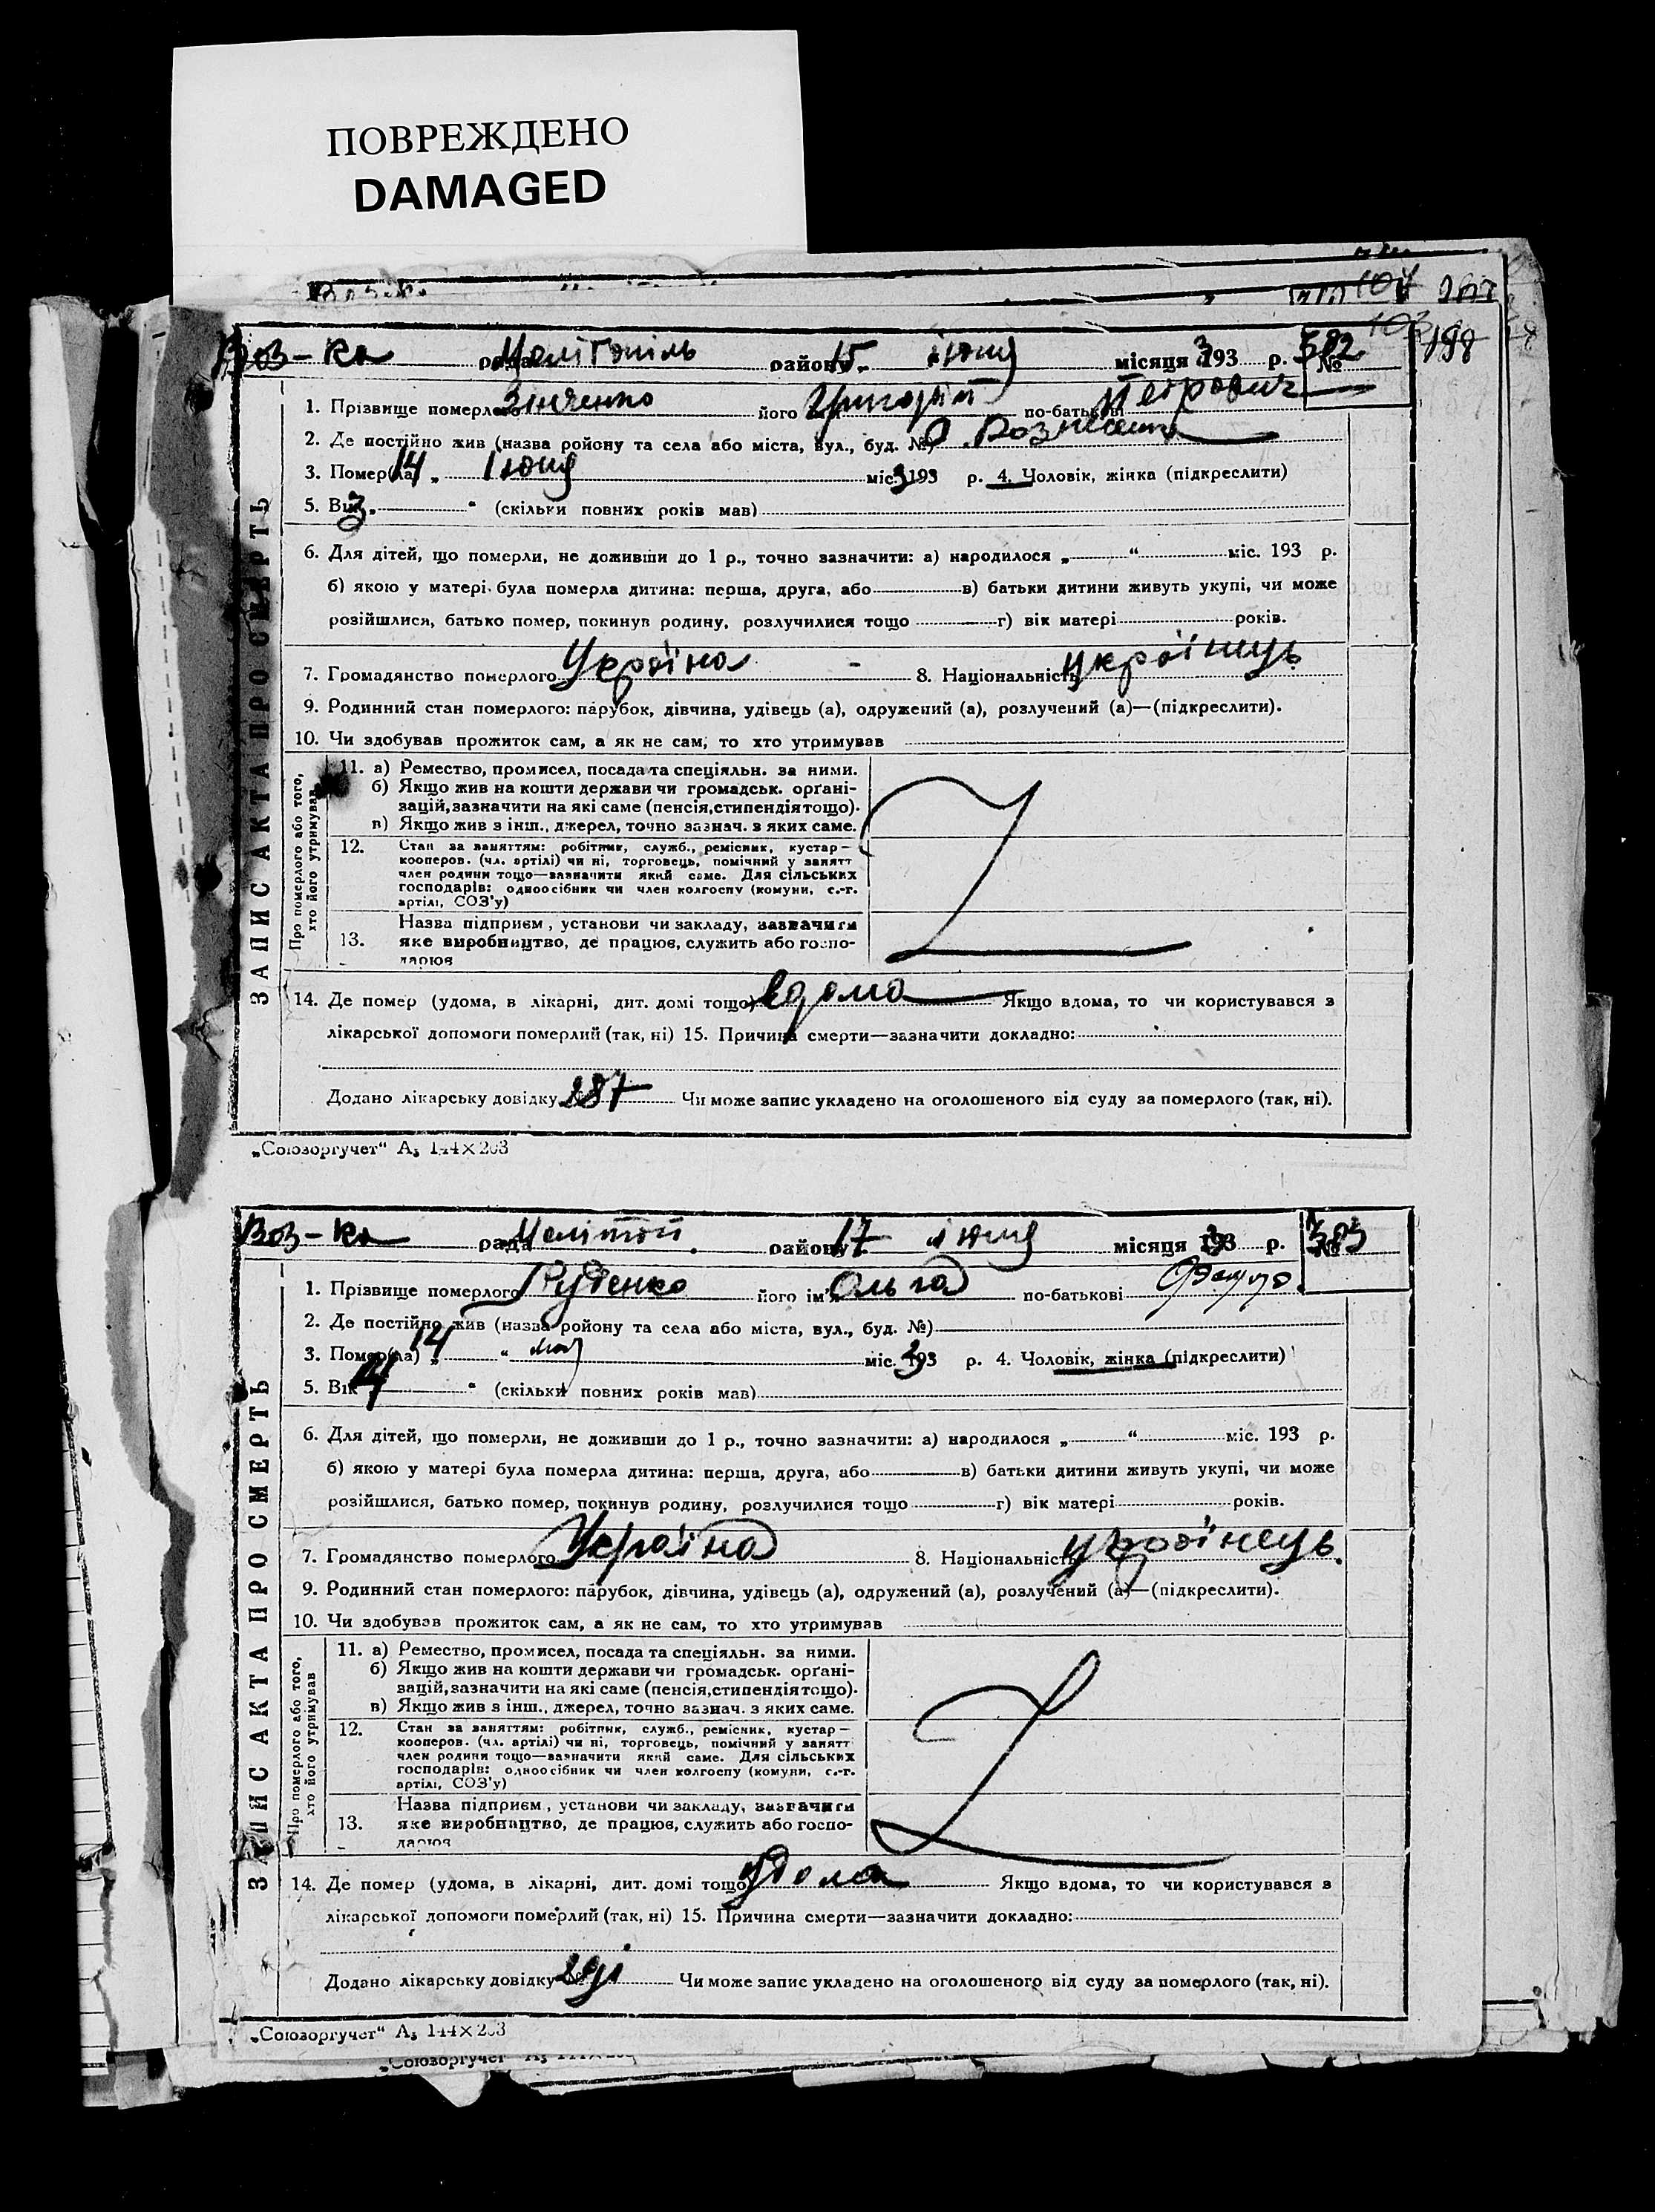 ПОВРЕЖДЕНО
DAMAGED
198
Воз-ка рада Мелітопіль району 15 іюня місяця 193 3 р. № 382
1. Прізвище померлого Зінченко його Григорій по-батькові Петрович
2. Де постійно жив (назва ройону та села або міста, вул., буд. №)
3. Помер(ла) 14 „ Іюня міс. 193 3 р. 4. Чоловік, жінка (підкреслити)
5. Вік 3 „ “ (скільки повних років мав)
6. Для дітей, що померли, не доживши до 1 р., точно зазначити: а) народилося „ “ міс. 193 р.
б) якою у матері була померла дитина: перша, друга, або в) батьки дитини живуть укупі, чи може
розійшлися, батько помер, покинув родину, розлучилися тощо г) вік матері років.
7. Громадянство померлого Україна 8. Національність українець
9. Родинний стан померлого: парубок, дівчина, удівець (а), одружений (а), розлучений (а)—(підкреслити).
10. Чи здобував прожиток сам, а як не сам, то хто утримував
ЗАПИС АКТА ПРО СМЕРТЬ
Про померлого або того, хто його утримував
11. а) Ремество, промисел, посада та спеціяльн. за ними.
б) Якщо жив на кошти держави чи громадськ. орґані-
зацій, зазначити на які саме (пенсія, стипендія тощо).
в) Якщо жив з інш., джерел, точно зазнач. з яких саме.
12. Стан за заняттям: робітник, служб., ремісник, кустар—
кооперов. (чл. артілі) чи ні, торговець, помічний у занятт
член родини тощо—зазначити який саме. Для сільських
господарів: одноосібник чи член колгоспу (комуни, с.-г.
артілі, СОЗ'у)
Назва підприєм, установи чи закладу, зазначити
13. яке виробництво, де працює, служить або госпо-
дарює
14. Де помер (удома, в лікарні, дит. домі тощо) вдома Якщо вдома, то чи користувався з
лікарської допомоги померлий (так, ні) 15. Причина смерти—зазначити докладно:
Додано лікарську довідку 287 Чи може запис укладено на оголошеного від суду за померлого (так, ні).
„Союзоргучет“ А5 144×203
Воз-ка рада Мелітоп. району 17 іюня місяця 193 3 р. № 383
1. Прізвище померлого Руденко його ім'я Ольга по-батькові
2. Де постійно жив (назва ройону та села або міста, вул., буд. №)
3. Помер(ла) 14 „ “ міс. 193 3 р. 4. Чоловік, жінка (підкреслити)
5. Вік 14 “ (скільки повних років мав)
6. Для дітей, що померли, не доживши до 1 р., точно зазначити: а) народилося „ “ міс. 193 р.
б) якою у матері була померла дитина: перша, друга, або в) батьки дитини живуть укупі, чи може
розійшлися, батько помер, покинув родину, розлучилися тощо г) вік матері років.
7. Громадянство померлого Україна 8. Національність українець.
9. Родинний стан померлого: парубок, дівчина, удівець (а), одружений (а), розлучений (а)—(підкреслити).
10. Чи здобував прожиток сам, а як не сам, то хто утримував
ЗАПИС АКТА ПРО СМЕРТЬ
Про померлого або того, хто його утримував
11. а) Ремество, промисел, посада та спеціяльн. за ними.
б) Якщо жив на кошти держави чи громадськ. орґані-
зацій, зазначити на які саме (пенсія, стипендія тощо).
в) Якщо жив з інш., джерел, точно зазнач. з яких саме.
12. Стан за заняттям: робітник, служб., ремісник, кустар—
кооперов. (чл. артілі) чи ні, торговець, помічний у занятт
член родини тощо—зазначити який саме. Для сільських
господарів: одноосібник чи член колгоспу (комуни, с.-г.
артілі, СОЗ'у)
Назва підприєм, установи чи закладу, зазначити
13. яке виробництво, де працює, служить або госпо-
дарює
14. Де помер (удома, в лікарні, дит. домі тощо) удома Якщо вдома, то чи користувався з
лікарської допомоги померлий (так, ні) 15. Причина смерти—зазначити докладно:
Додано лікарську довідку № Чи може запис укладено на оголошеного від суду за померлого (так, ні).
„Союзоргучет“ А5 144×203
„Союзоргучет“